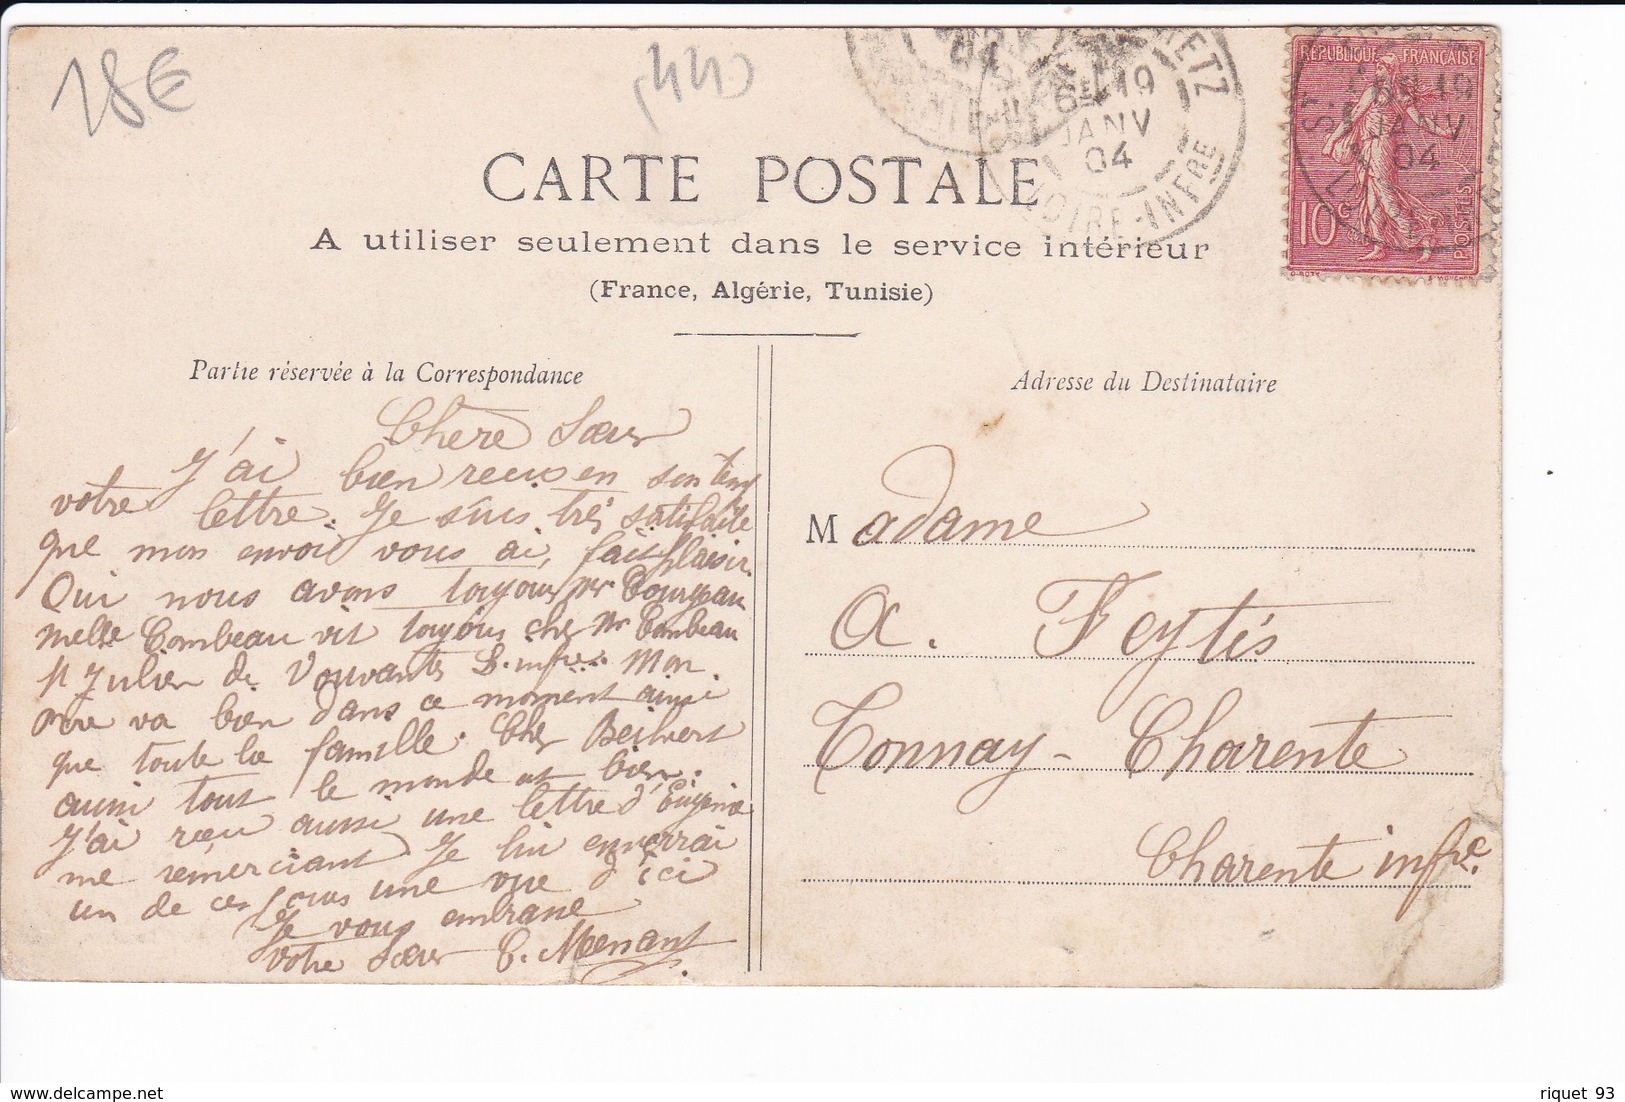 18€
440
RÉPUBLIQUE FRANÇAISE
10 c
POSTES
O. ROTY
19
JANV
04
LOIRE-INFRE
CARTE POSTALE
A utiliser seulement dans le service intérieur
(France, Algérie, Tunisie)
Partie réservée à la Correspondance
Chère Sœur
J'ai bien recus en son temp
votre lettre. Je suis très satifaite
que mon envoi vous ai, fait plaisir.
Oui nous avons toujours Mr Tourgeau
Melle Combeau vit toujours chez Mr Combeau
St Julien de Vouvantes L. infre. Mon
père va bien dans ce moment ainsi
que toute la famille. Chez Beilvert
aussi tout le monde est bien.
J'ai reçu aussi une lettre d'Eugénie
me remerciant. Je lui enverrai
un de ces jours une vue d'ici
Je vous embrasse
votre Sœur C. Menant
Adresse du Destinataire
Madame
A. Feytis
Tonnay-Charente
Charente infre.
riquet 93